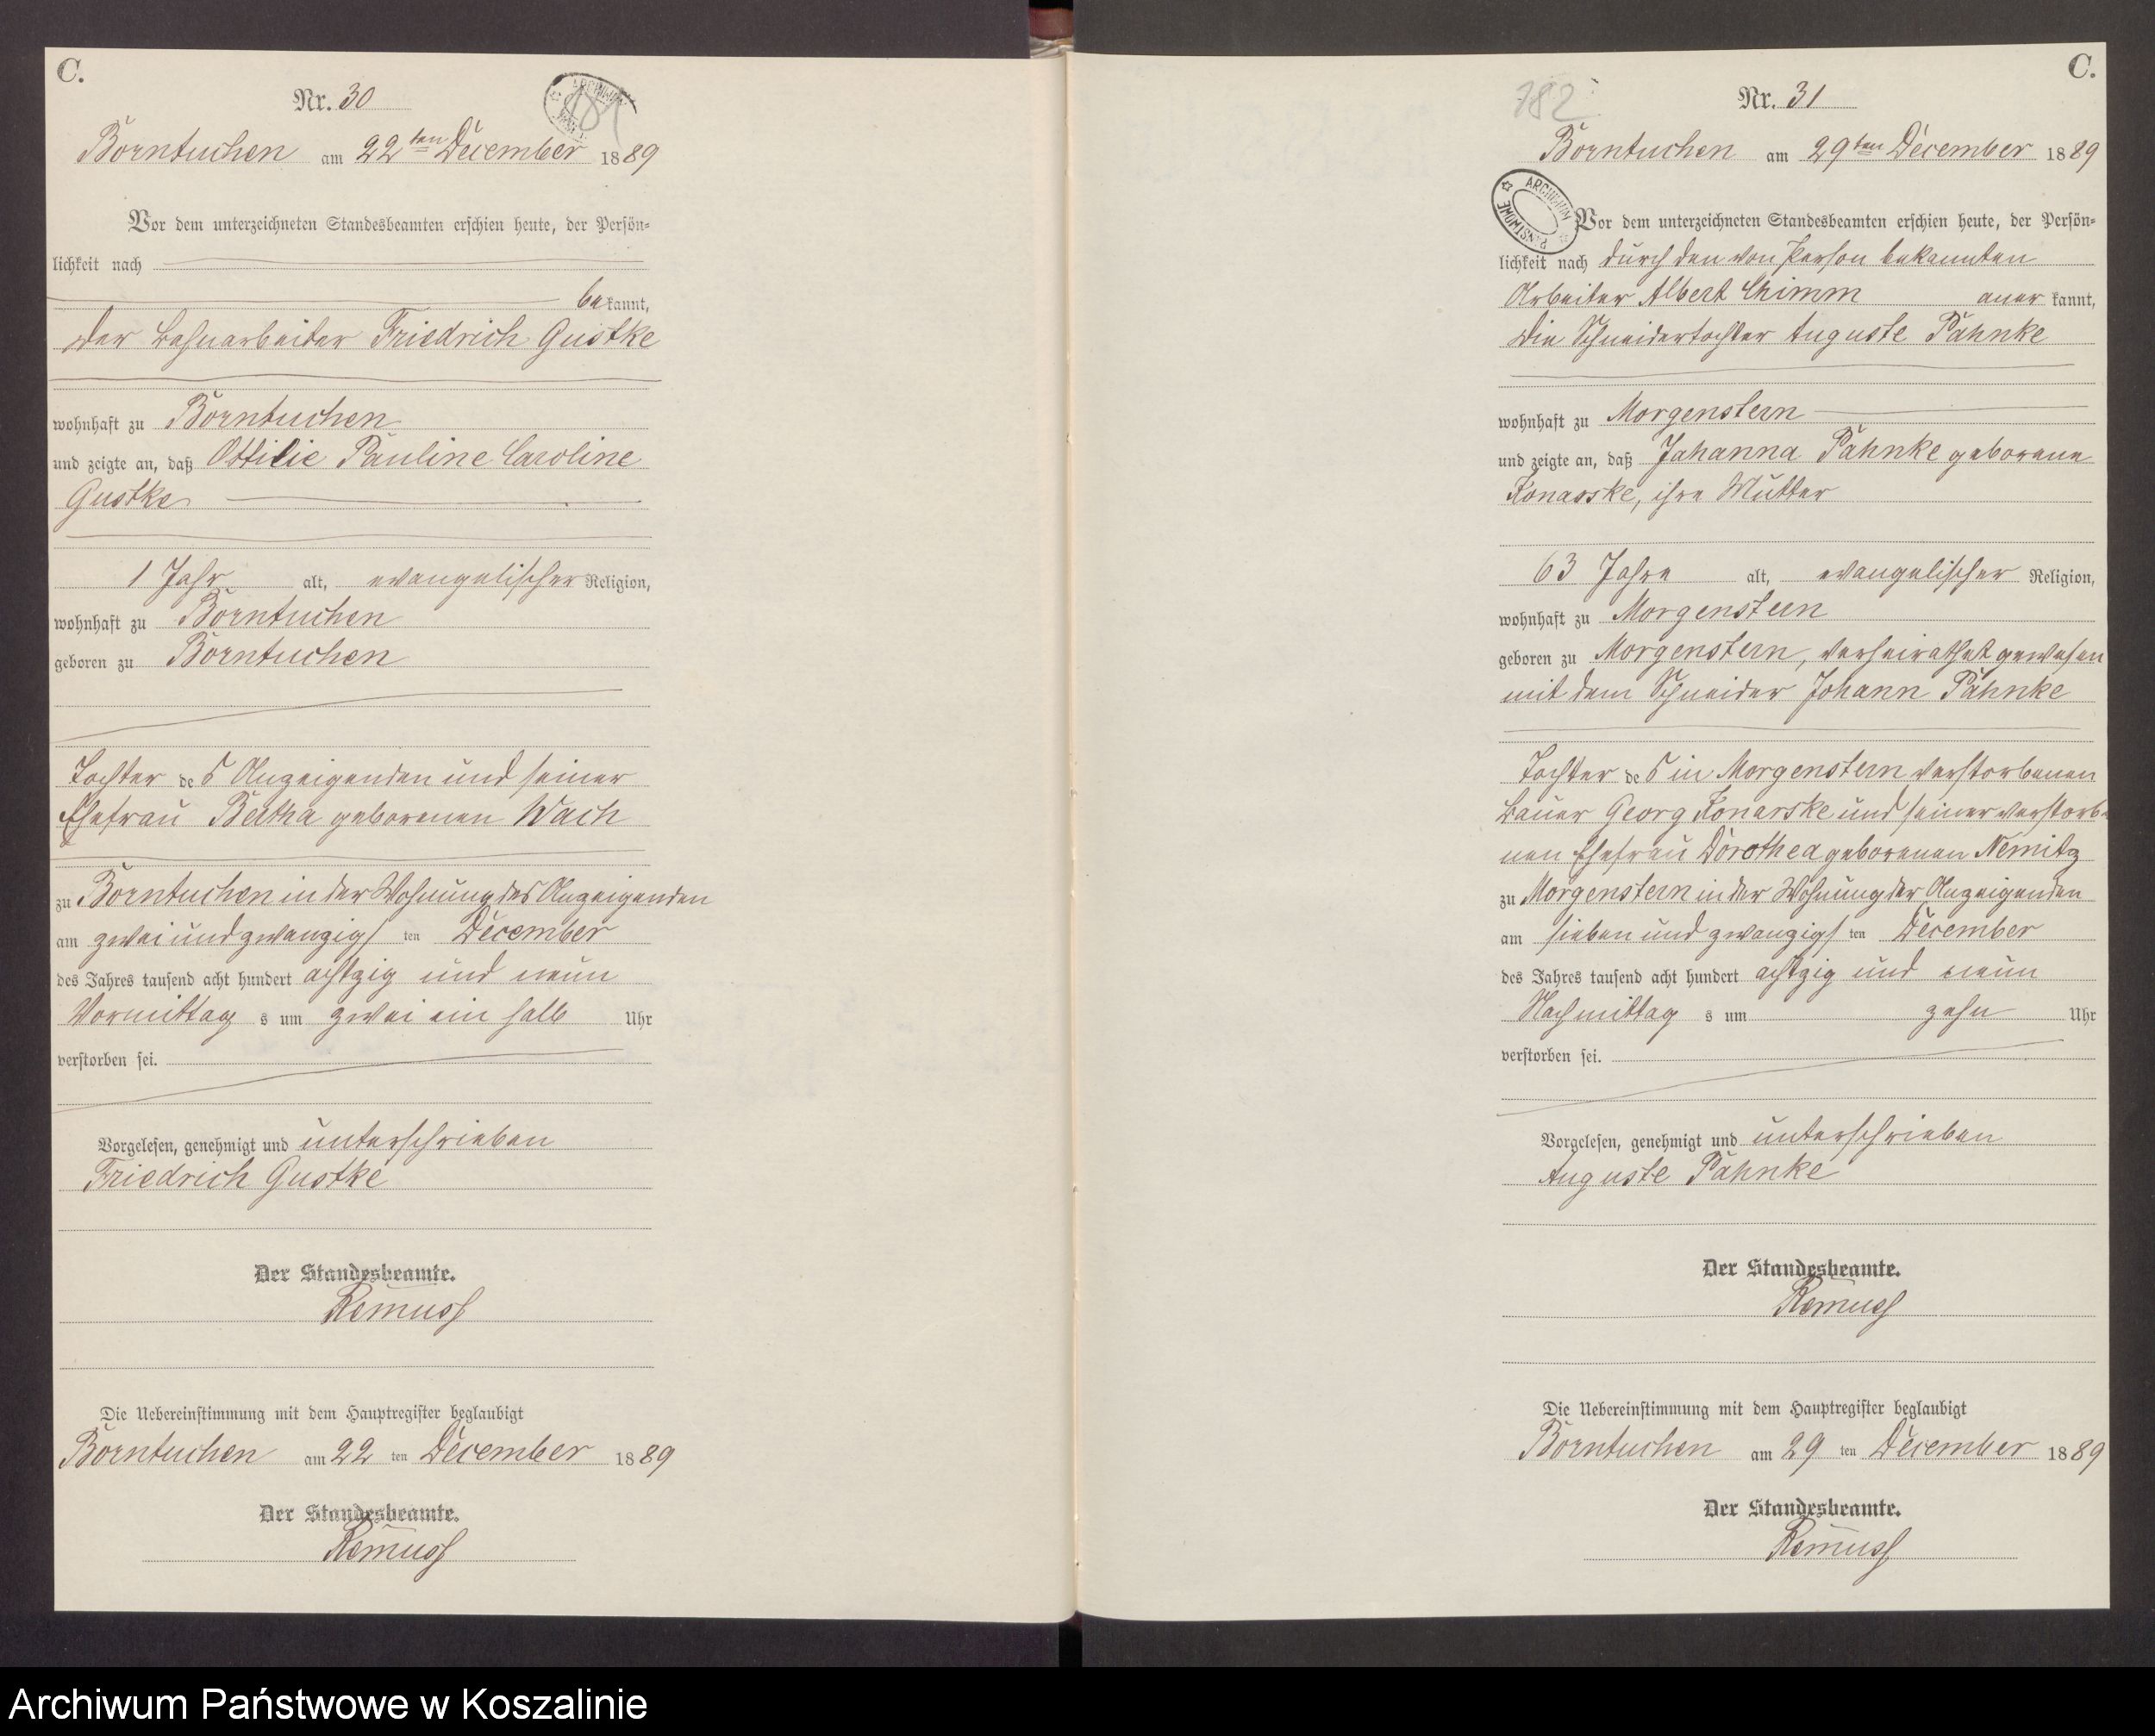 C.
Nr. 30
181
Borntuchen am 22ten December 1889
Vor dem unterzeichneten Standesbeamten erschien heute, der Persön-
lichkeit nach
bekannt,
der Bahnarbeiter Friedrich Gustke
wohnhaft zu Borntuchen
und zeigte an, daß Ottilie Pauline Caroline
Gustke
1 Jahr alt, evangelischer Religion,
wohnhaft zu Borntuchen
geboren zu Borntuchen
Tochter des Anzeigenden und seiner
Ehefrau Bertha geborenen Wach
zu Borntuchen in der Wohnung des Anzeigenden
am zwei und zwanzigsten December
des Jahres tausend acht hundert achtzig und neun
Vormittags um zwei ein halb Uhr
verstorben sei.
Vorgelesen, genehmigt und unterschrieben
Friedrich Gustke
Der Standesbeamte.
Remuss
Die Uebereinstimmung mit dem Hauptregister beglaubigt
Borntuchen am 22 ten December 1889
Der Standesbeamte.
Remuss
C.
182
Nr. 31
Borntuchen am 29ten December 1889
ARCHIWUM PAŃSTWOWE
Vor dem unterzeichneten Standesbeamten erschien heute, der Persön-
lichkeit nach durch den von Person bekannten
Arbeiter Albert anerkannt,
die Schneidertochter Auguste Pahnke
wohnhaft zu Morgenstern
und zeigte an, daß Johanna Pahnke geborene
Konarske, ihre Mutter
63 Jahre alt, evangelischer Religion,
wohnhaft zu Morgenstern
geboren zu Morgenstern, verheirathet gewesen
mit dem Schneider Johann Pahnke
Tochter des in Morgenstern verstorbenen
Bauer Georg Konarske und seiner verstorbe-
nen Ehefrau Dorothea geborenen Nemitz
zu Morgenstern in der Wohnung der Anzeigenden
am sieben und zwanzigsten December
des Jahres tausend acht hundert achtzig und neun
Nachmittags um zehn Uhr
verstorben sei.
Vorgelesen, genehmigt und unterschrieben
Auguste Pahnke
Der Standesbeamte.
Remuss
Die Uebereinstimmung mit dem Hauptregister beglaubigt
Borntuchen am 29 ten December 1889
Der Standesbeamte.
Remuss
Archiwum Państwowe w Koszalinie